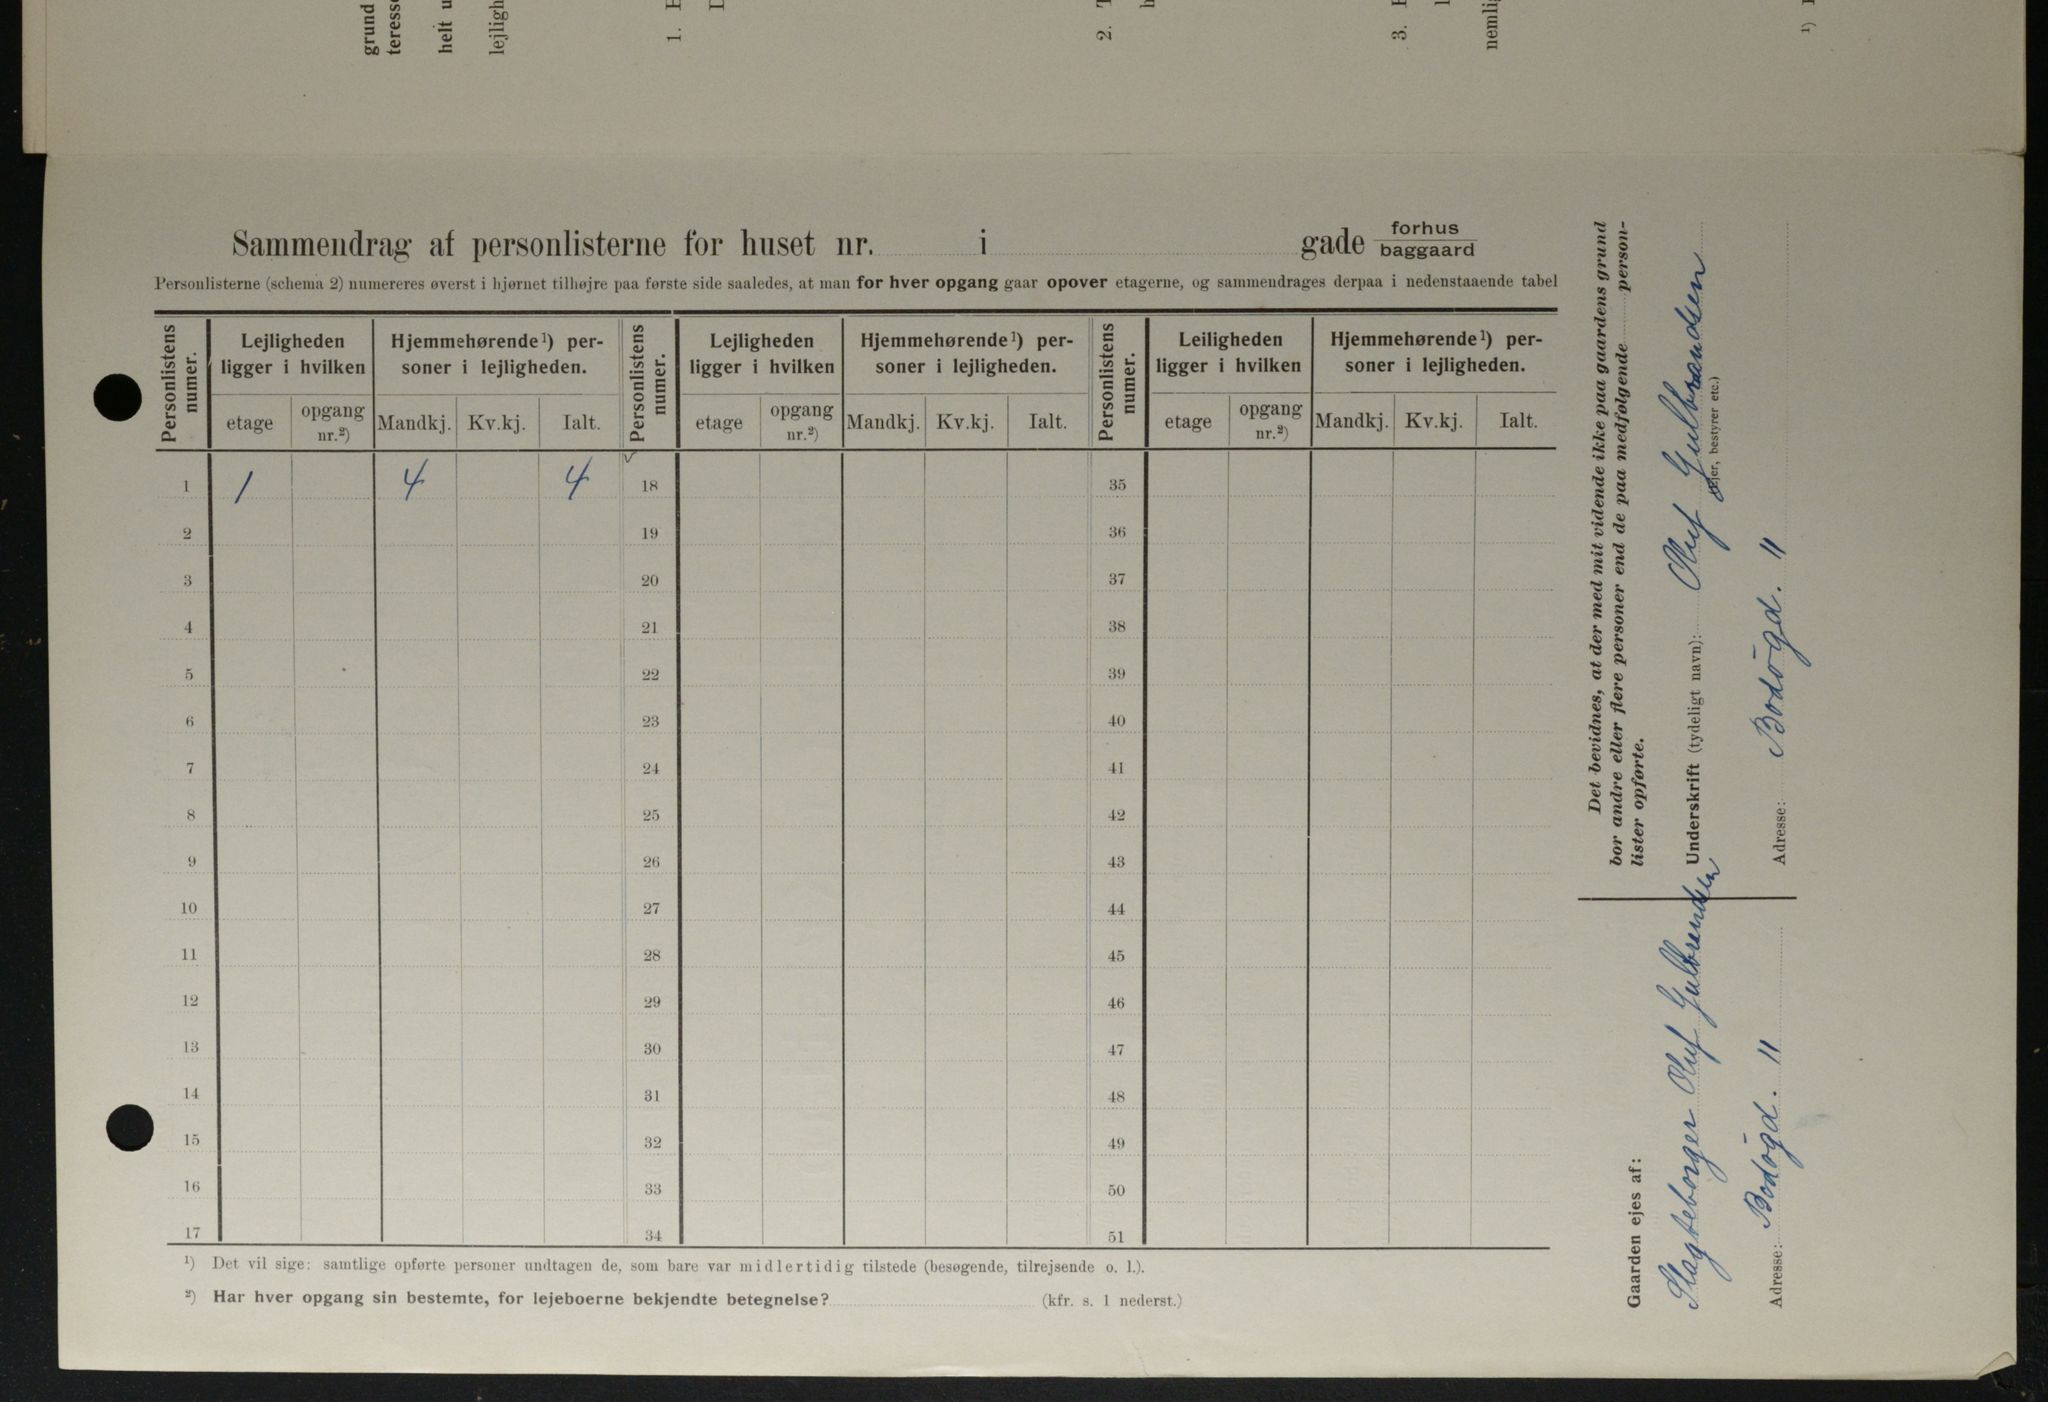 grund
teresse
helt u
lejligh
1. E
D
2. T
b
3.
nemlig
1)
Sammendrag af personlisterne for huset nr. i gade forhus
baggaard
Personlisterne (schema 2) numereres øverst i hjørnet tilhøjre paa første side saaledes, at man for hver opgang gaar opover etagerne, og sammendrages derpaa i nedenstaaende tabel
Personlistens numer. Lejligheden ligger i hvilken Hjemmehørende¹) personer i lejligheden. Personlistens numer. Lejligheden ligger i hvilken Hjemmehørende¹) personer i lejligheden. Personlistens numer. Leiligheden ligger i hvilken Hjemmehørende¹) personer i lejligheden.
etage opgang nr.²) Mandkj. Kv.kj. Ialt. etage opgang nr.²) Mandkj. Kv.kj. Ialt. etage opgang nr.²) Mandkj. Kv.kj. Ialt.
1 1 4 4 18 35
2 19 36
3 20 37
4 21 38
5 22 39
6 23 40
7 24 41
8 25 42
9 26 43
10 27 44
11 28 45
12 29 46
13 30 47
14 31 48
15 32 49
16 33 50
17 34 51
¹) Det vil sige: samtlige opførte personer undtagen de, som bare var midlertidig tilstede (besøgende, tilrejsende o. l.).
²) Har hver opgang sin bestemte, for lejeboerne bekjendte betegnelse? (kfr. s. 1 nederst.)
Det bevidnes, at der med mit vidende ikke paa gaardens grund
bor andre eller flere personer end de paa medfølgende person-
lister opførte.
Underskrift (tydeligt navn): Oluf Gulbrandsen
(ejer, bestyrer etc.)
Adresse: Bodøgd. 11
Gaarden ejes af:
Slagteborger Oluf Gulbrandsen
Adresse: Bodøgd. 11